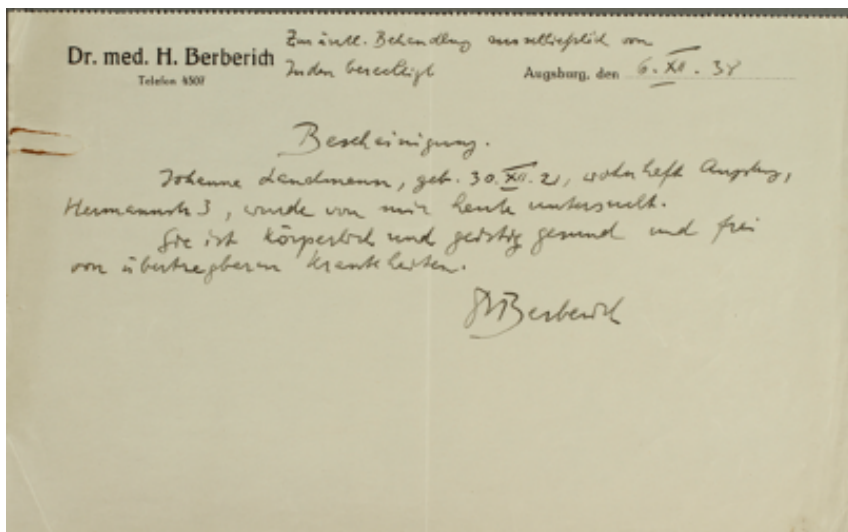 Dr. med. H. Berberich
Telefon 4507
Zur ärztl. Behandlung ausschließlich von
Juden berechtigt
Augsburg, den 6. XII. 38
Bescheinigung.
Johanne Landmann, geb. 30. XII. 21, wohnhaft Augsburg,
Hermannstr 3, wurde von mir heute untersucht.
Sie ist körperlich und geistig gesund und frei
von übertragbaren Krankheiten.
Dr Berberich